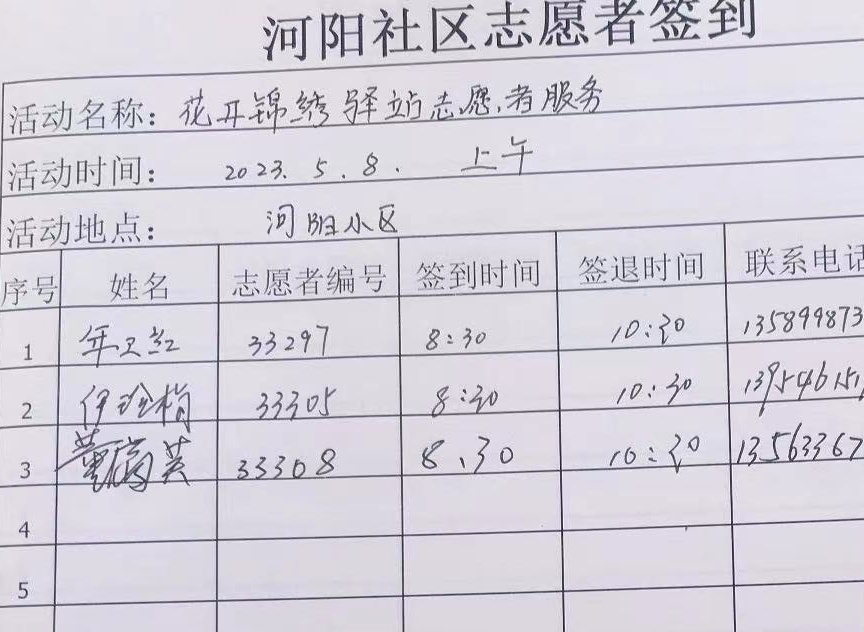 河阳社区志愿者签到
活动名称：花开锦绣驿站志愿者服务
活动时间：2023.5.8. 上午
活动地点：河阳小区
序号 姓名 志愿者编号 签到时间 签退时间 联系电话
1 年卫红 33297 8:30 10:30 135899873
2 伊玲梅 33305 8:30 10:30 139546151
3 董瑞英 33308 8.30 10:30 13563367
4
5